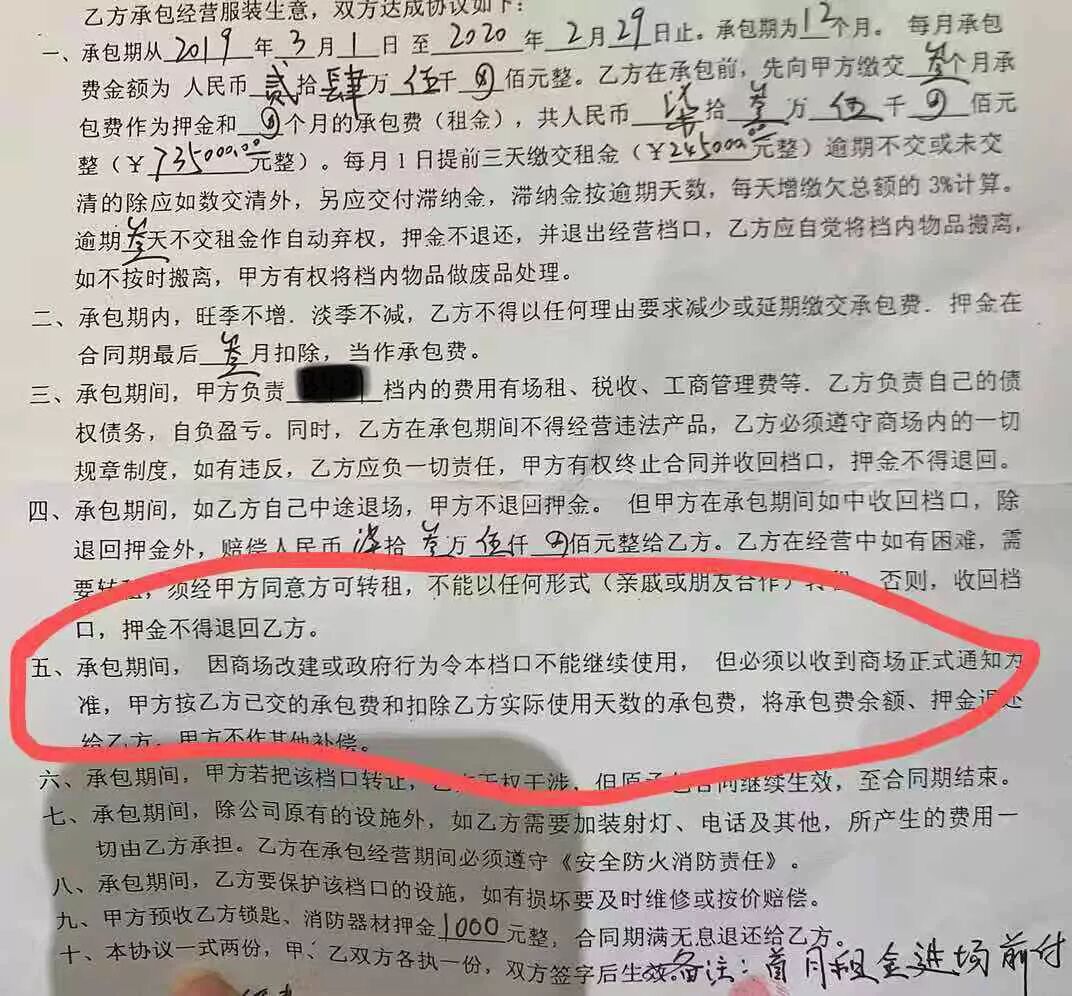 乙方承包经营服装生意，双方达成协议如下：
一、承包期从2019年3月1日至2020年2月29日止。承包期为12个月。 每月承包
费金额为 人民币 贰拾肆万伍千 佰元整。乙方在承包前，先向甲方缴交 叁个月承
包费作为押金和 个月的承包费（租金），共人民币 柒拾叁万伍千 佰元
整（¥735000.00元整）。每月1日提前三天缴交租金（¥245000.00元整）逾期不交或未交
清的除应如数交清外，另应交付滞纳金，滞纳金按逾期天数，每天增缴欠总额的3%计算。
逾期叁天不交租金作自动弃权，押金不退还，并退出经营档口，乙方应自觉将档内物品搬离，
如不按时搬离，甲方有权将档内物品做废品处理。
二、承包期内，旺季不增．淡季不减，乙方不得以任何理由要求减少或延期缴交承包费．押金在
合同期最后叁月扣除，当作承包费。
三、承包期间，甲方负责 档内的费用有场租、税收、工商管理费等．乙方负责自己的债
权债务，自负盈亏。同时，乙方在承包期间不得经营违法产品，乙方必须遵守商场内的一切
规章制度，如有违反，乙方应负一切责任，甲方有权终止合同并收回档口，押金不得退回。
四、承包期间，如乙方自己中途退场，甲方不退回押金。 但甲方在承包期间如中收回档口，除
退回押金外，赔偿人民币 柒拾叁万伍仟 佰元整给乙方。乙方在经营中如有困难，需
要转租，须经甲方同意方可转租，不能以任何形式（亲戚或朋友合作）转租，否则，收回档
口，押金不得退回乙方。
五、承包期间， 因商场改建或政府行为令本档口不能继续使用， 但必须以收到商场正式通知为
准，甲方按乙方已交的承包费和扣除乙方实际使用天数的承包费，将承包费余额、押金退还
给乙方，甲方不作其他补偿。
六、承包期间，甲方若把该档口转让，乙方无权干涉，但原承包合同继续生效，至合同期结束。
七、承包期间，除公司原有的设施外，如乙方需要加装射灯、电话及其他，所产生的费用一
切由乙方承担。乙方在承包经营期间必须遵守《安全防火消防责任》。
八、承包期间，乙方要保护该档口的设施，如有损坏要及时维修或按价赔偿。
九、甲方预收乙方锁匙、消防器材押金1000元整，合同期满无息退还给乙方。
十、本协议一式两份，甲、乙双方各执一份，双方签字后生效。备注：首月租金进场前付